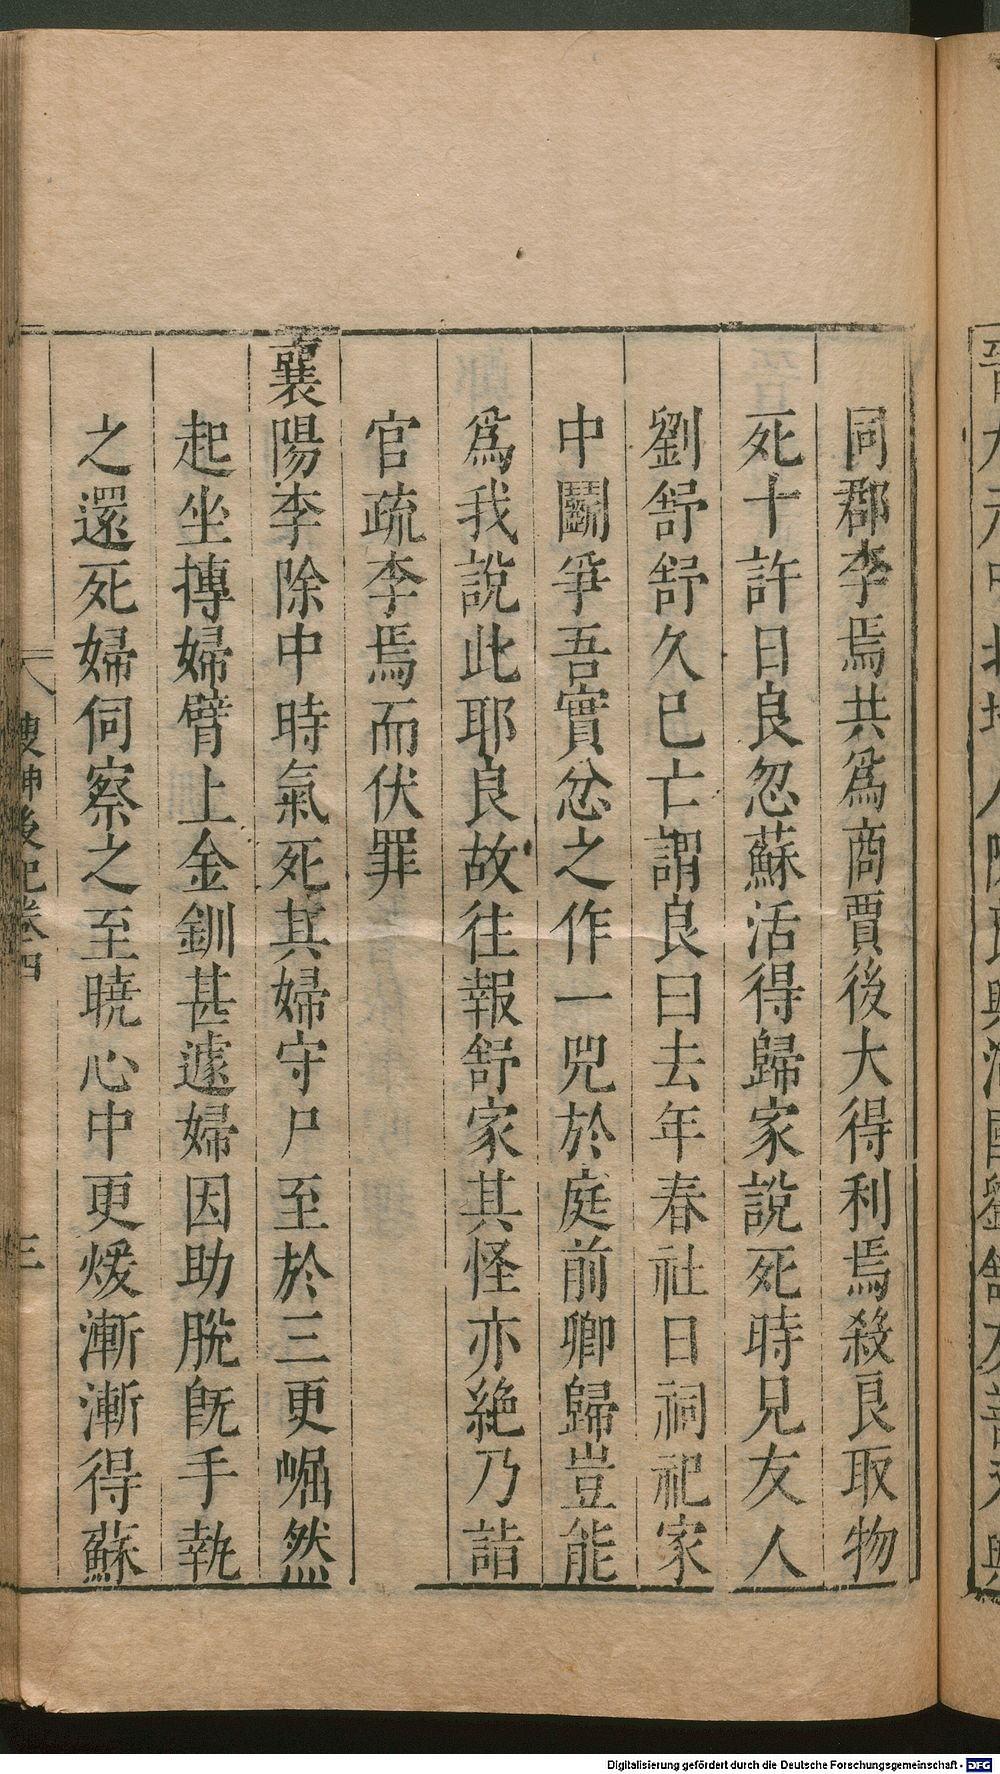 同郡李焉共爲商賈後大得利焉殺良取物
死十許日良忽蘇活得歸家說死時見友人
劉舒舒久已亡謂良曰去年春社日祠祀家
中鬪爭吾實忿之作一兕於庭前卿歸豈能
爲我說此耶良故往報舒家其怪亦絶乃詣
官疏李焉而伏罪
襄陽李除中時氣死其婦守尸至於三更崛然
起坐摶婦臂上金釧甚遽婦因助脫旣手執
之還死婦伺察之至曉心中更煖漸漸得蘇
搜神後記卷四
三
Digitalisierung gefördert durch die Deutsche Forschungsgemeinschaft - DFG